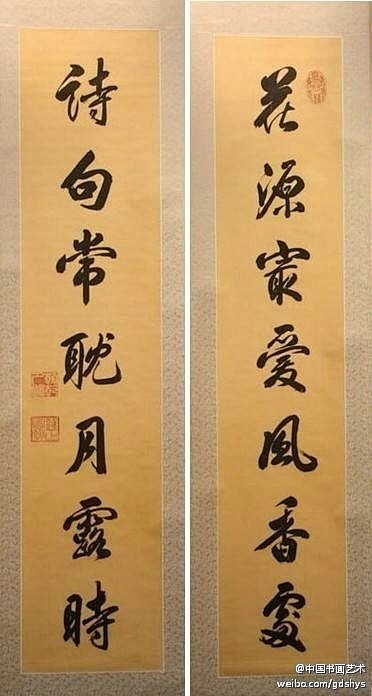 花源㝡愛風香處
詩句常耽月露時
@中国书画艺术
weibo.com/gdshys